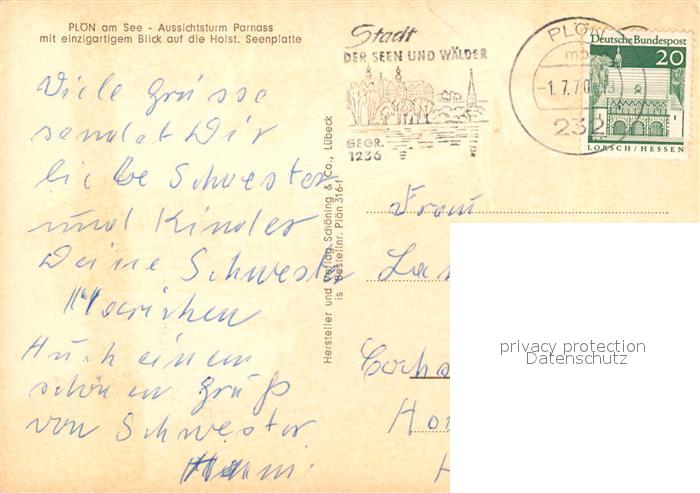 PLÖN am See - Aussichtsturm Parnass
mit einzigartigem Blick auf die Holst. Seenplatte
Viele Grüsse
sendet Dir
liebe Schwester
und Kinder
Deine Schwester
Mariechen
Auch einen
schönen Gruß
von Schwester
Hersteller und Verlag Schöning & Co., Lübeck
Bestellnr. Plön 316-1
Stadt
DER SEEN UND WÄLDER
GEGR.
1236
PLÖN
-1.7.70
232
Deutsche Bundespost
20
LORSCH/HESSEN
Frau
privacy protection
Datenschutz